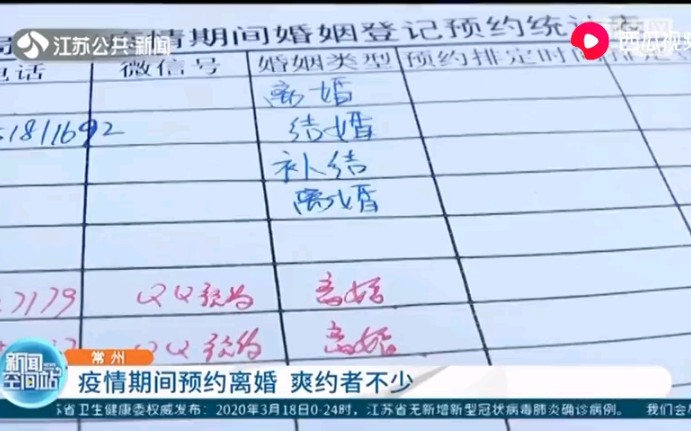 江苏公共·新闻
疫情期间婚姻登记预约统计表
西瓜视频
电话 微信号 婚姻类型 预约排定时间
离婚
1811692 结婚
补结
离婚
7179 QQ预约 离婚
QQ预约 离婚
常州
新闻空间站
疫情期间预约离婚 爽约者不少
苏省卫生健康委权威发布：2020年3月18日0-24时，江苏省无新增新型冠状病毒肺炎确诊病例。 我们会